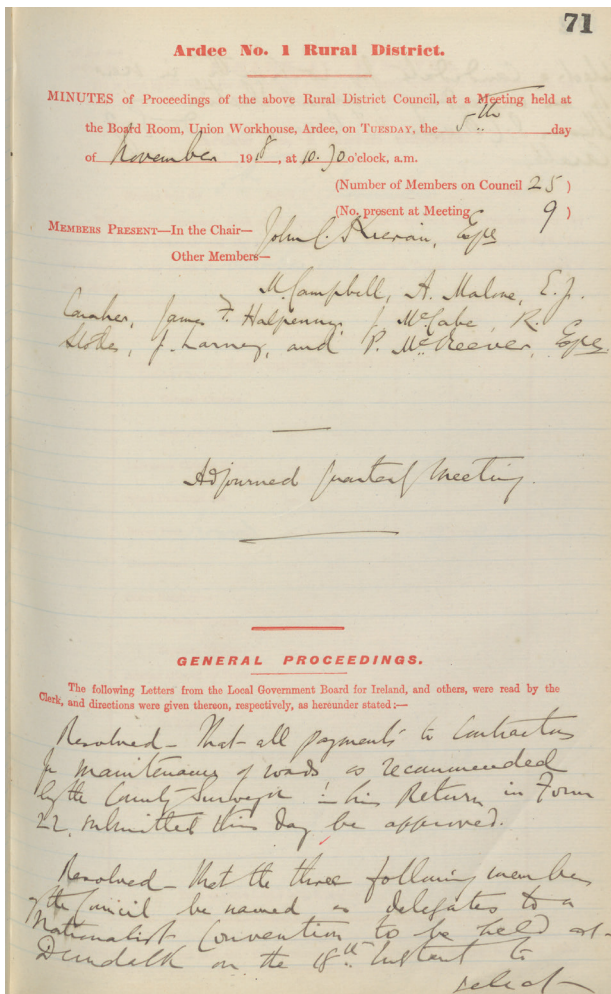 71
Ardee No. 1 Rural District.
MINUTES of Proceedings of the above Rural District Council, at a Meeting held at
the Board Room, Union Workhouse, Ardee, on TUESDAY, the 5th day
of November 1918, at 10.30 o'clock, a.m.
(Number of Members on Council 25)
(No. present at Meeting 9)
MEMBERS PRESENT—In the Chair— John C. Kieran, Esqr
Other Members—
M. Campbell, A. Malone, E. J.
Caraher, James F. Halpenny, J. McCabe, R.
J. Larney, and P. McKeever, Esqrs
Adjourned Quarterly Meeting.
GENERAL PROCEEDINGS.
The following Letters from the Local Government Board for Ireland, and others, were read by the
Clerk, and directions were given thereon, respectively, as hereunder stated:—
Resolved – That all payments to Contractors
for maintenance of roads as recommended
by the County Surveyor in his Return in Form
22, submitted this day be approved.
Resolved – That the three following members
of the Council be named as delegates to a
Nationalist Convention to be held at
Dundalk on the 18th Instant to
select